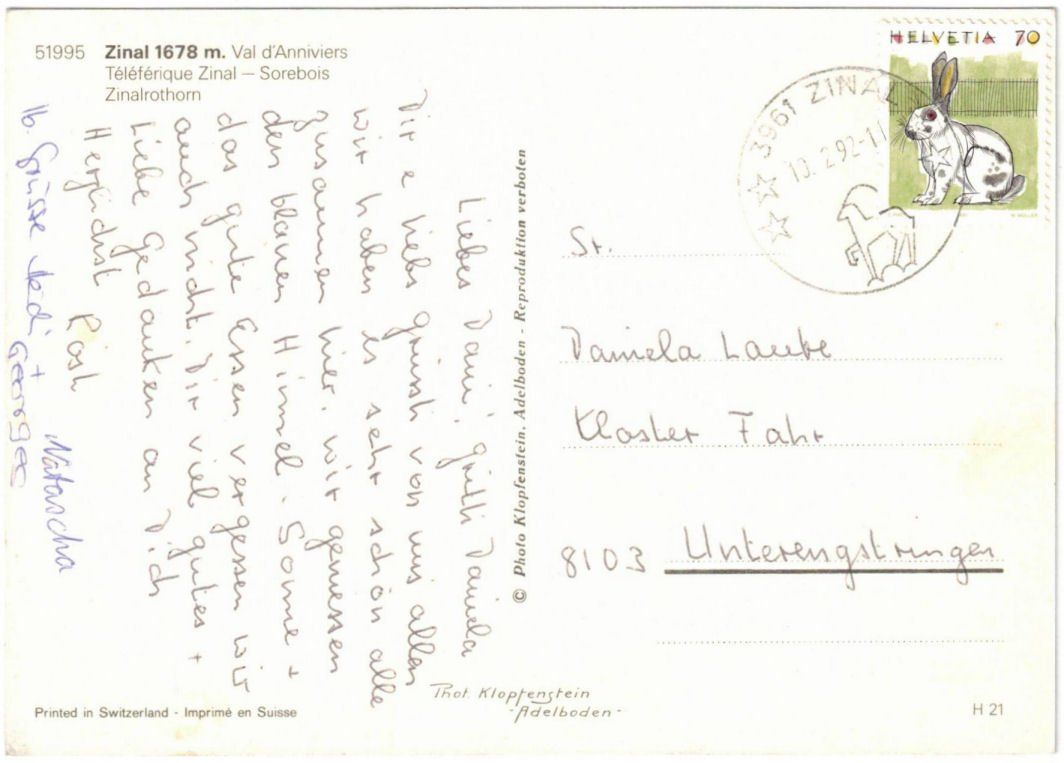 51995 Zinal 1678 m. Val d'Anniviers
Téléférique Zinal — Sorebois
Zinalrothorn
HELVETIA 70
3961 ZINAL
10.2.92-11
Liebes Dani, grüßli Daniela
Dir e liebe grüssli von uns allen
wir haben es sehr schön alle
zusammen hier. wir geniessen
den blauen Himmel. Sonne +
das gute Essen vergessen wir
auch nicht. Dir viel gutes +
Liebe Gedanken an Dich
Herzlichst Rösli
Natascha
lb. Grüsse Heidi + Georges
© Photo Klopfenstein, Adelboden - Reproduktion verboten
Sr.
Daniela Laube
Kloster Fahr
8103 Unterengstringen
Phot. Klopfenstein
-Adelboden-
Printed in Switzerland - Imprimé en Suisse
H 21